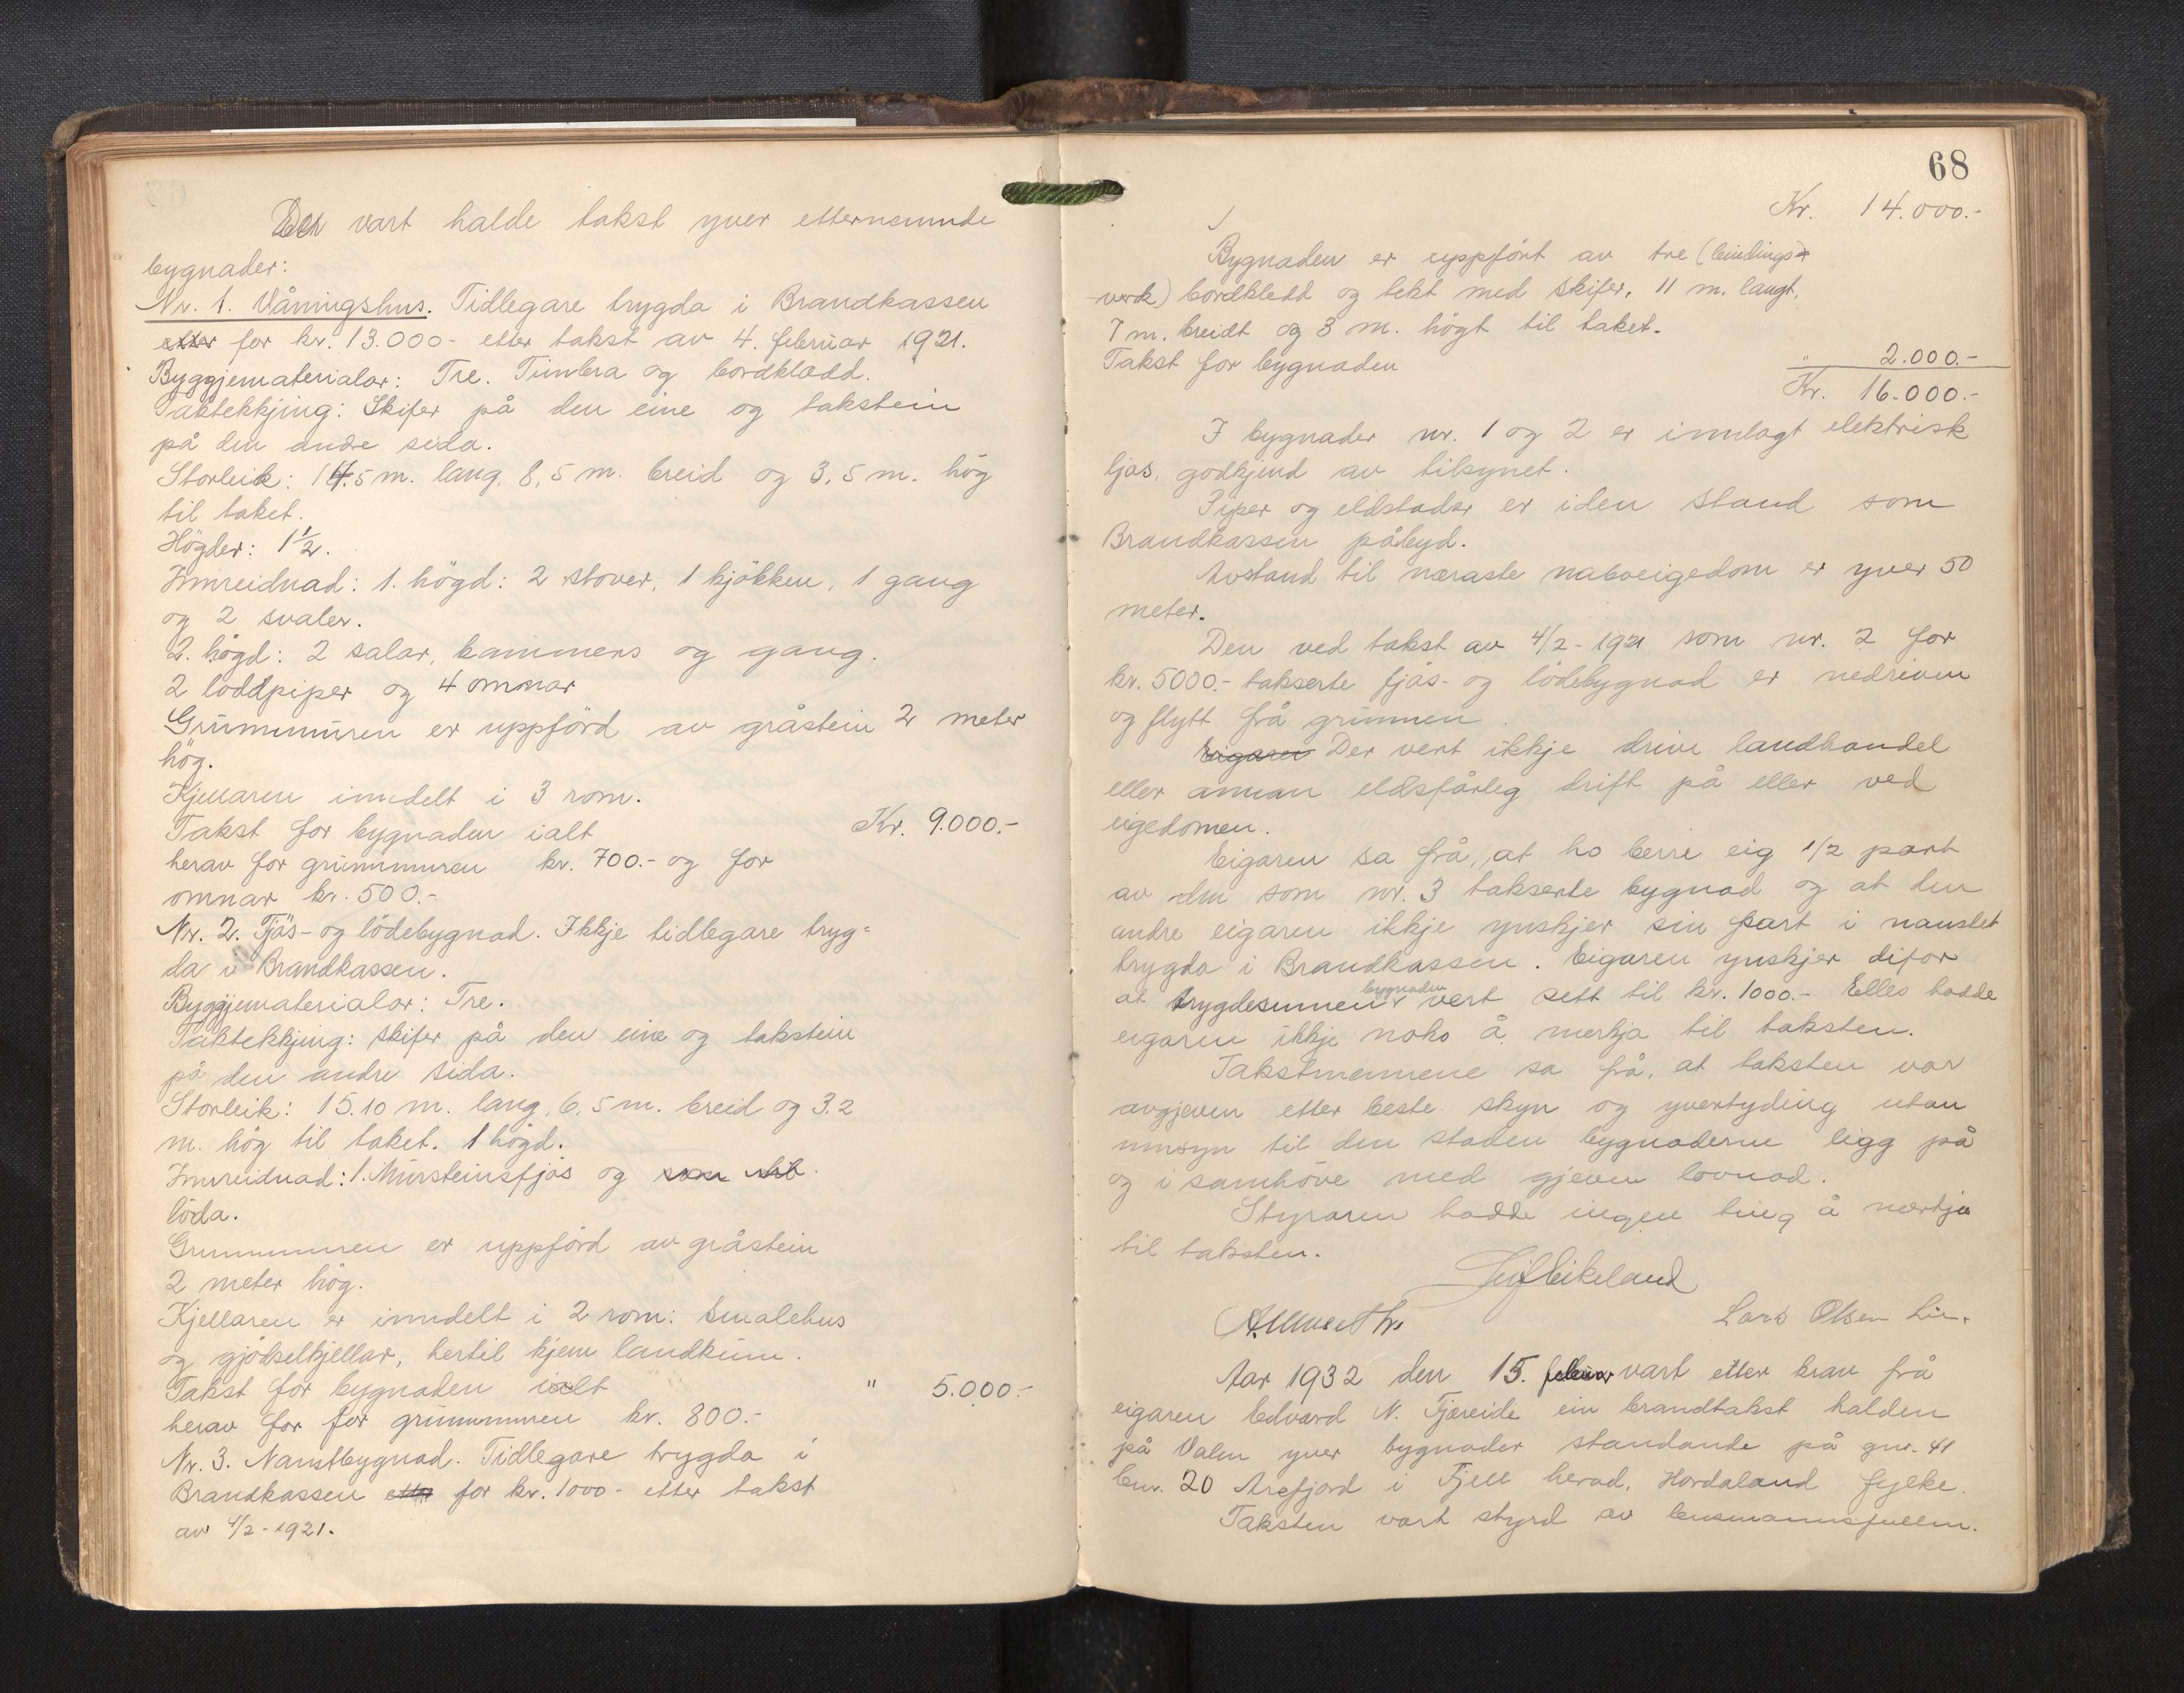 Der vart halde takst yver etternemnde
bygnader:
Nr. 1. Våningshus. Tidlegare trygda i Brandkassen
etter for kr. 13.000- etter takst av 4. februar 1921.
Byggjematerialar: Tre. Timbra og bordklædd.
Taktekkjing: Skifer på den eine og takstein
på den andre sida.
Storleik: 14.5 m. lang, 8,5 m. breid og 3,5 m. hög
til taket.
Högder: 1 1/2.
Innreidnad: 1. högd: 2 stover, 1 kjökken, 1 gang
og 2 svaler.
2. högd: 2 salar, kammers og gang.
2 loddpiper og 4 omnar
Grunnmuren er uppförd av gråstein 2 meter
hög.
Kjellaren inndelt i 3 rom.
Takst for bygnaden ialt Kr. 9.000.-
herav for grunnmuren kr. 700.- og for
omnar kr. 500.-
Nr. 2. Fjös- og lödebygnad. Ikkje tidlegare tryg=
da i Brandkassen.
Byggjematerialar: Tre.
Taktekkjing: Skifer på den eine og takstein
på den andre sida.
Storleik: 15.10 m. lang, 6,5 m. breid og 3.2
m. hög til taket. 1 högd.
Innreidnad: 1. Mursteinsfjös og
löda.
Grunnmuren er uppförd av gråstein
2 meter hög.
Kjellaren er inndelt i 2 rom: Smalehus
og gjödselkjellar, hertil kjem landkum.
Takst for bygnaden ialt " 5.000.-
herav for for grunnmuren kr. 800.-
Nr. 3. Naustbygnad. Tidlegare trygda i
Brandkassen etter for kr. 1000- etter takst
av 4/2-1921.
68
Kr. 14.000.-
Bygnaden er uppfört av tre (bindings=
verk) bordkledd og tekt med skifer, 11 m. langt,
7 m. breidt og 3 m. högt til taket.
Takst for bygnaden " 2.000.-
Kr. 16.000.-
I bygnader nr. 1 og 2 er innlagt elektrisk
ljos, godkjend av tilsynet.
Piper og eldstader er i den stand som
Brandkassen påbyd.
Avstand til næraste naboeigedom er yver 50
meter.
Den ved takst av 4/2-1921 som nr. 2 for
kr. 5000.- takserte fjös- og lödebygnad er nedriven
og flytt frå grunnen.
Eigaren Der vert ikkje drive landhandel
eller annan eldsfårleg drift på eller ved
eigedomen.
Eigaren sa frå, at ho berre eig 1/2 part
av den som nr. 3 takserte bygnad og at den
andre eigaren ikkje ynskjer sin part i naustet
trygda i Brandkassen. Eigaren ynskjer difor
at trygdesumen bygnaden vert sett til kr. 1000.- Elles hadde
eigaren ikkje noko å merkja til taksten.
Takstmennene sa frå, at taksten var
avgjeven etter beste skyn og yvertyding utan
umsyn til den staden bygnaderne ligg på
og i samhöve med gjeven lovnad.
Styraren hadde ingen ting å merkja
til taksten.
Leif Eikeland
Lars Olsen Lie.
Aar 1932 den 15. februar vart etter krav frå
eigaren Edvard N. Fjæreide ein brandtakst halden
på Valen yver bygnader standande på gnr. 41
bnr. 20 Arefjord i Fjell herad, Hordaland fylke.
Taksten vart styrd av lensmannsfullm.